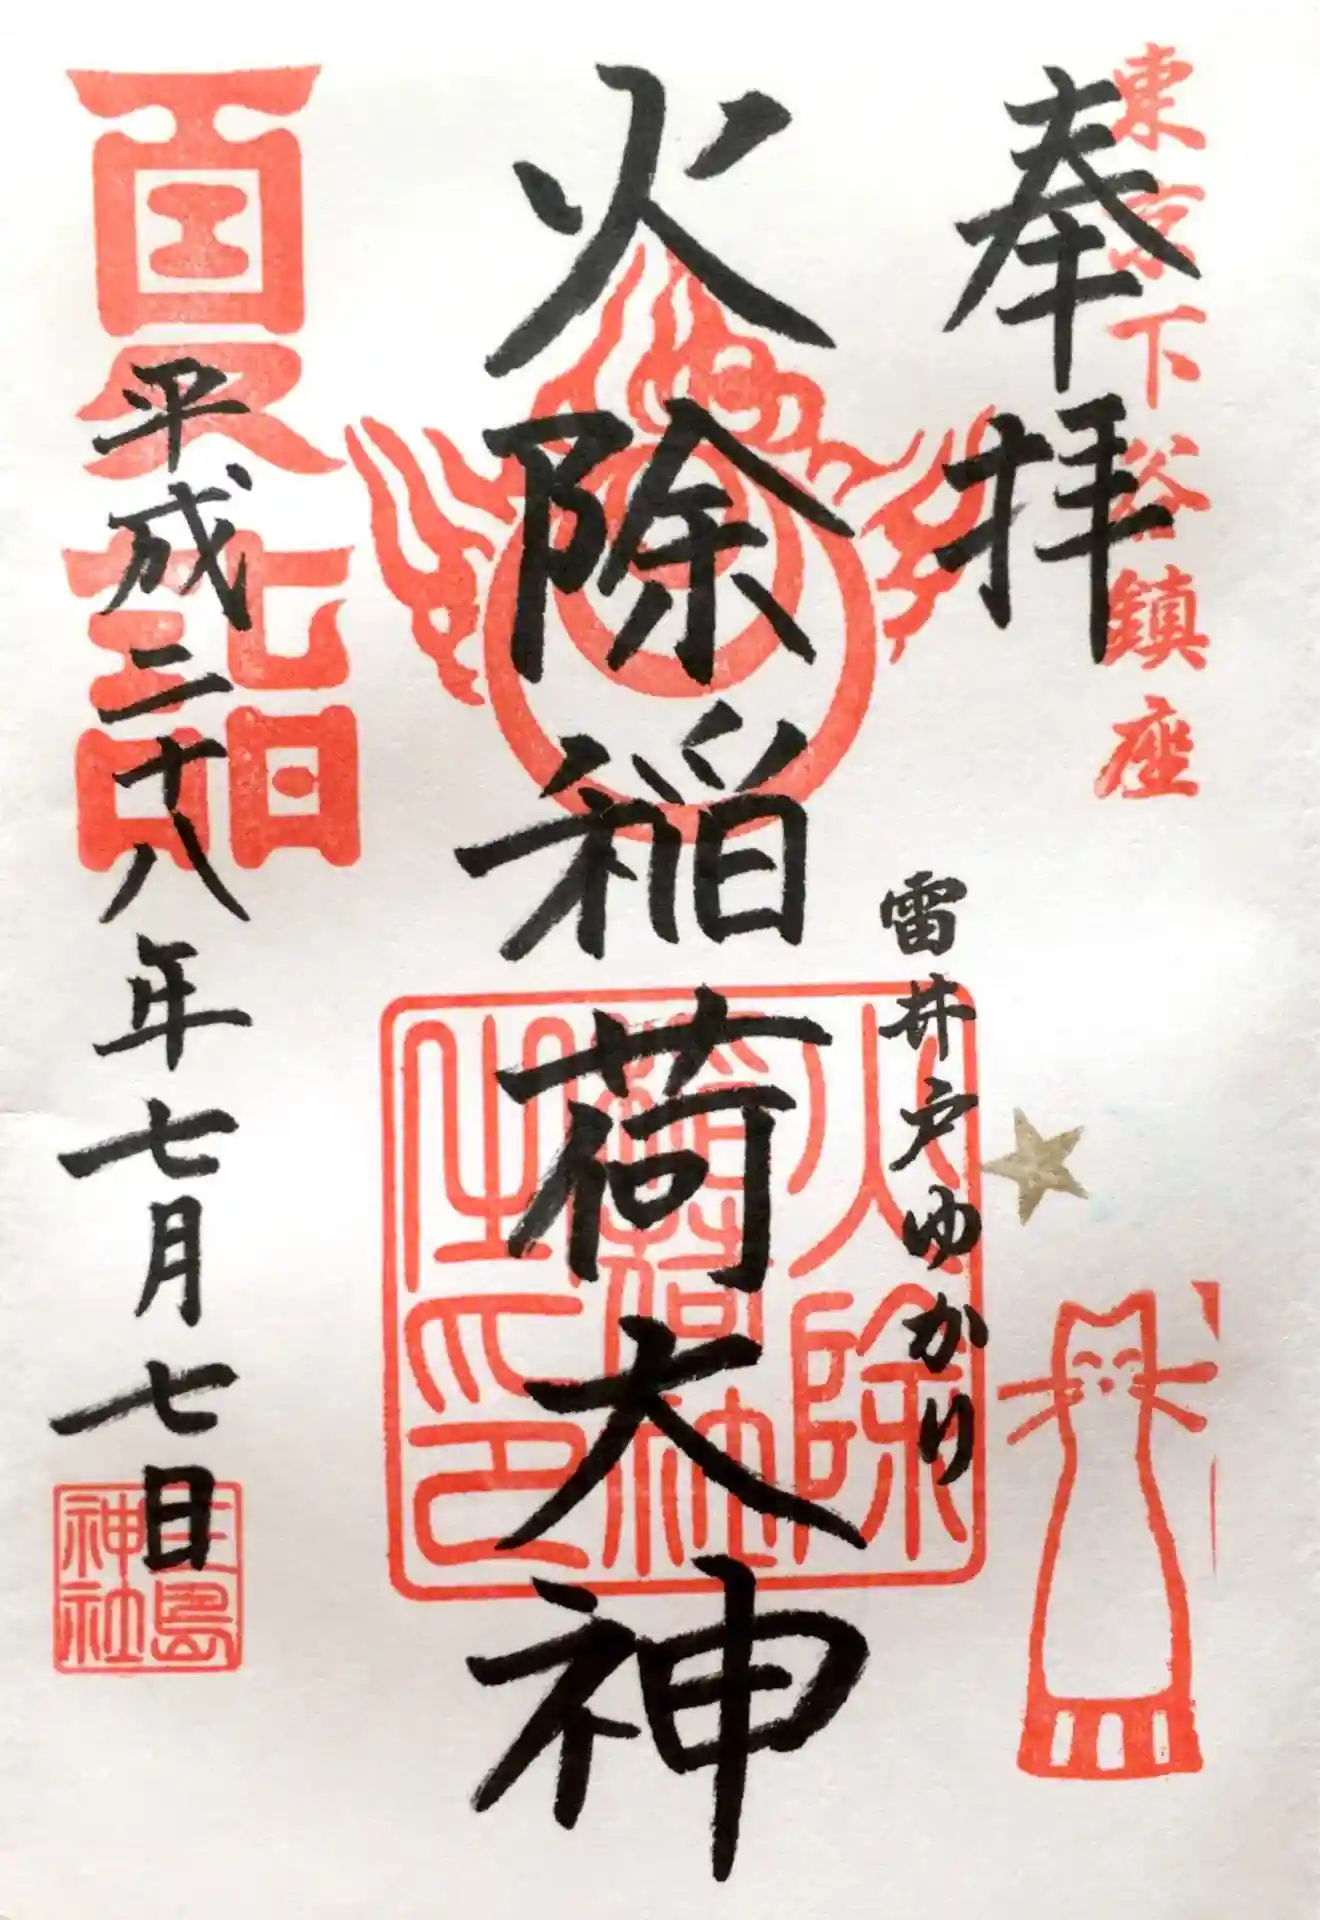 東京下谷鎮座
奉拝
雷井戸ゆかり
火除稲荷大神
火除
稲荷社
之印
夏詣
平成二十八年七月七日
三島
神社